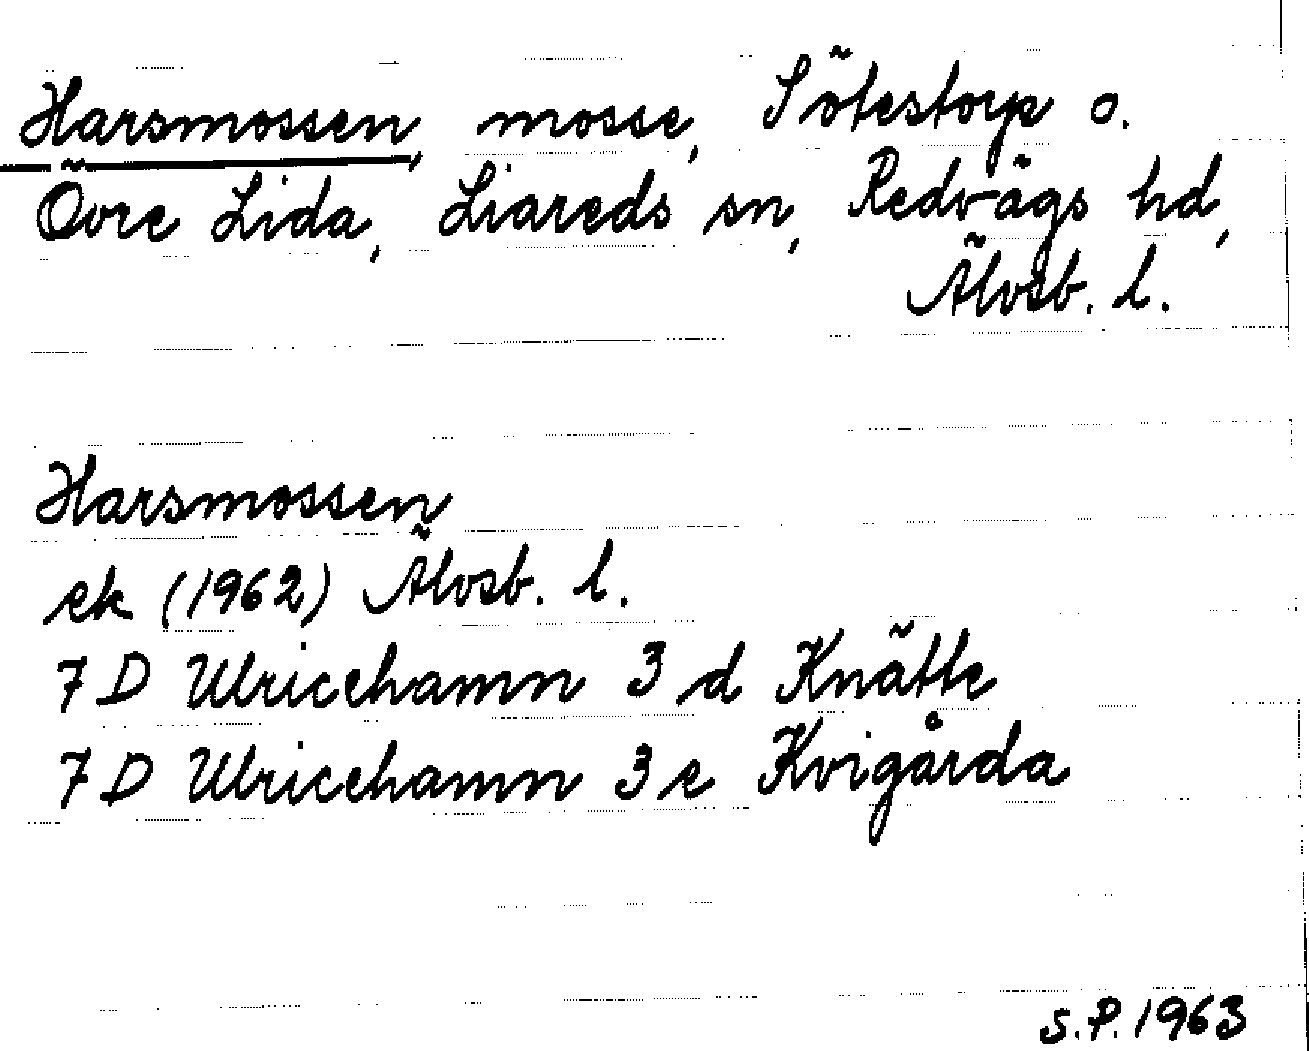 Harsmossen, mosse, Sötestorp o.
Övre Lida, Liareds sn, Redvägs hd,
Älvsb. l.
Harsmossen
ek (1962) Älvsb. l.
7 D Ulricehamn 3 d Knätte
7 D Ulricehamn 3 e Kvigårda
S.P. 1963